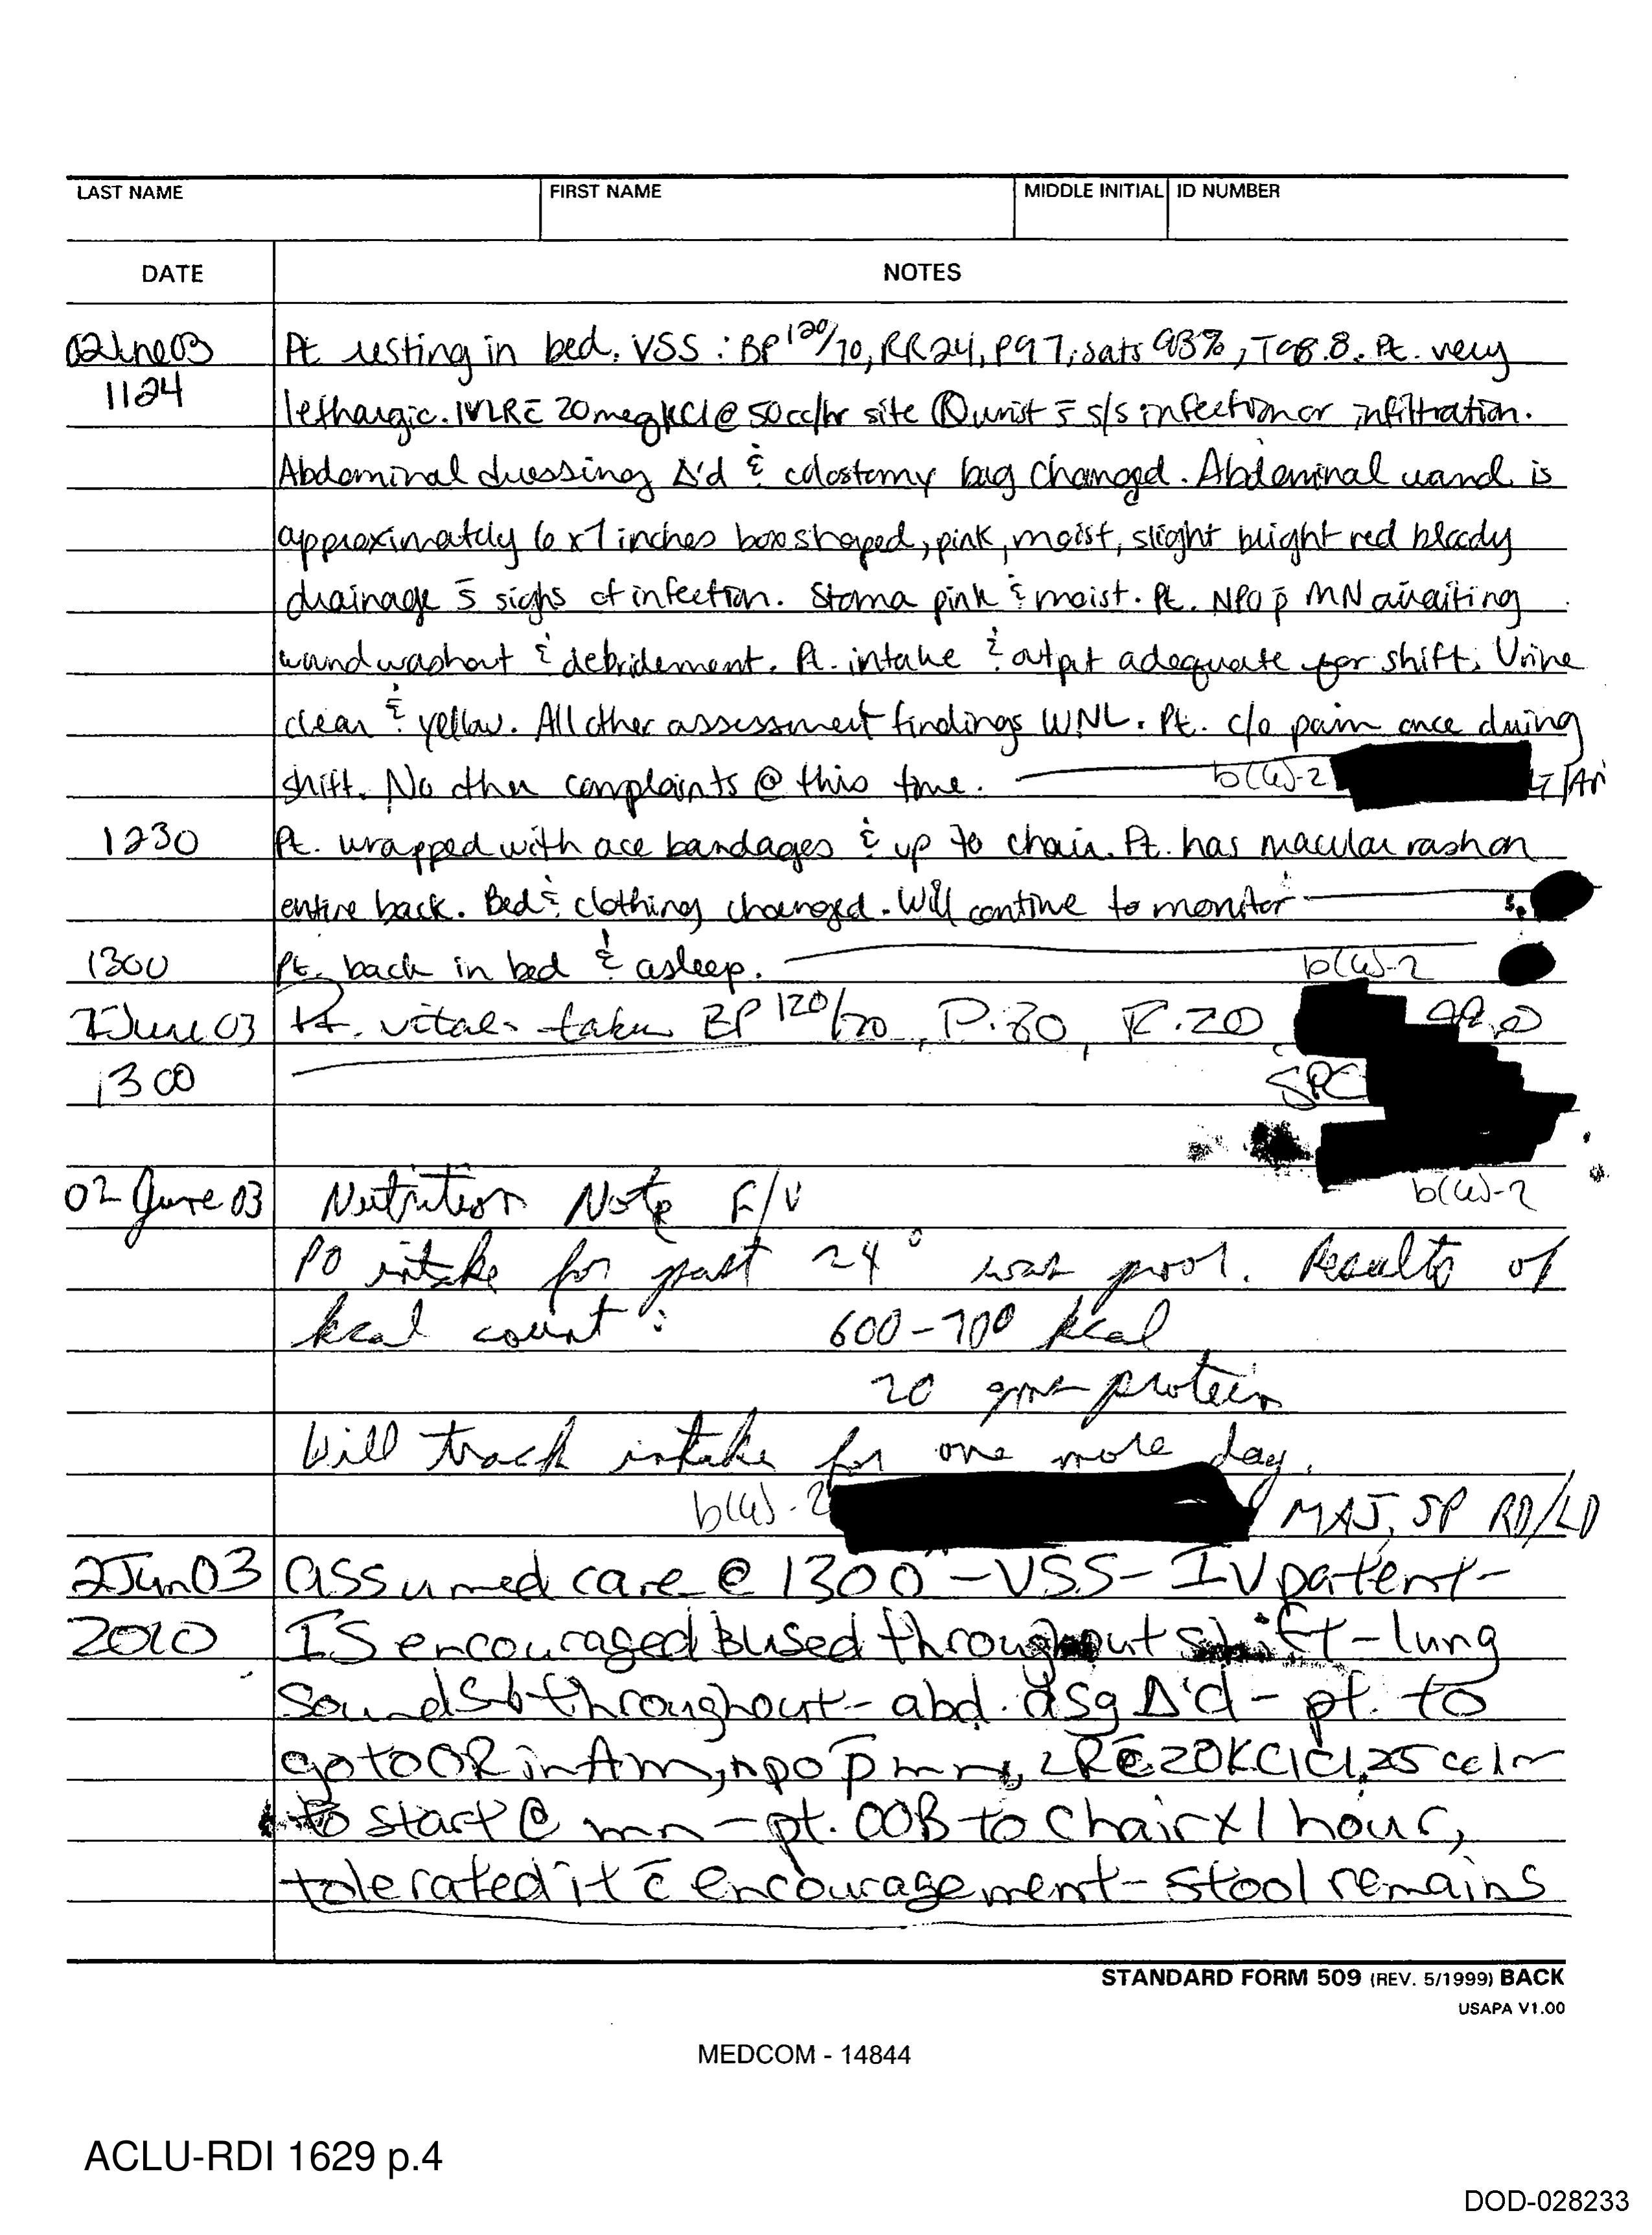 LAST NAME FIRST NAME MIDDLE INITIAL ID NUMBER
DATE NOTES
02June03 Pt resting in bed. VSS: BP 120/70, RR24, P97, sats 93%, T98.8. Pt. very
1124 lethargic. IV LR c̄ 20meq KCl @ 50cc/hr site Ⓡ wrist s̄ s/s infection or infiltration.
Abdominal dressing Δ'd & colostomy bag changed. Abdominal wound is
approximately 6x7 inches box shaped, pink, moist, slight bright red bloody
drainage s̄ signs of infection. Stoma pink & moist. Pt. NPO p̄ MN awaiting
wound washout & debridement. Pt. intake & output adequate for shift. Urine
clear & yellow. All other assessment findings WNL. Pt. c/o pain once during
shift. No other complaints @ this time. b(6)-2
1230 Pt. wrapped with ace bandages & up to chair. Pt. has macular rash on
entire back. Bed & clothing changed. Will contine to monitor
1300 Pt. back in bed & asleep. b(6)-2
2June03 Pt. vitals taken BP 120/70, P.80, R.20
1300 SPC
b(6)-2
02 June 03 Nutrition Note F/U
PO intake for past 24° was poor. Results of
kcal count: 600-700 kcal
20 gms protein
Will track intake for one more day.
b(6)-2 MAJ, SP RD/LD
2Jun03 assumed care @ 1300 - VSS - IV patent -
2010 IS encouraged & used throughout shift - lung
sounds throughout - abd. dsg Δ'd - pt. to
go to OR in Am, npo p̄ mn, LR c̄ 20KCl @ 125 cc/hr
to start @ mn - pt. OOB to chair x 1 hour,
tolerated it c̄ encouragement - stool remains
STANDARD FORM 509 (REV. 5/1999) BACK
USAPA V1.00
MEDCOM - 14844
ACLU-RDI 1629 p.4
DOD-028233